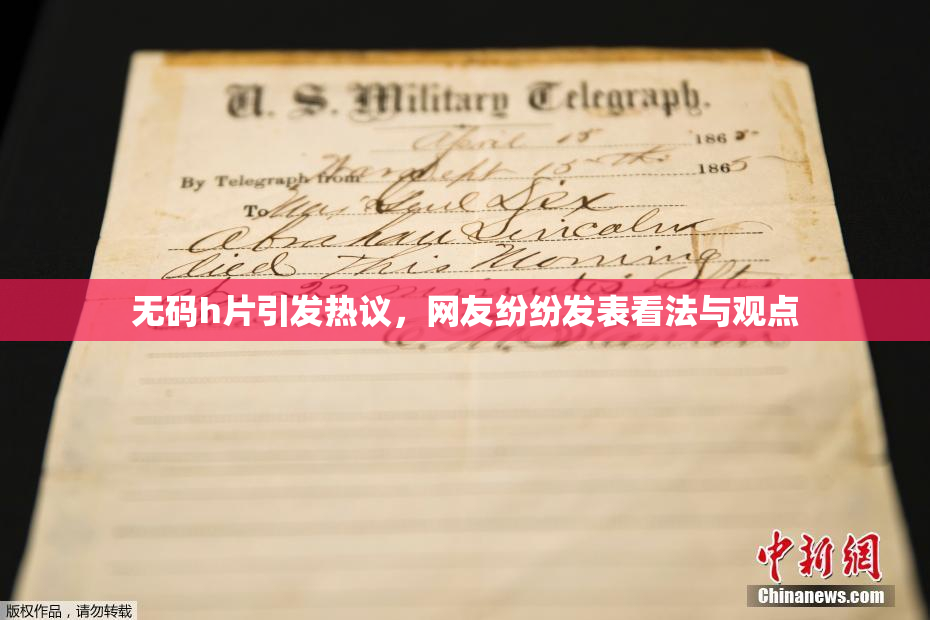 U. S. Military Telegraph.
April 15 1865
By Telegraph from War Dept 15th 1865
To Maj Genl Dix
Abraham Lincoln
died This Morning
at 22 minutes after
无码h片引发热议，网友纷纷发表看法与观点
中新网
Chinanews.com
版权作品，请勿转载